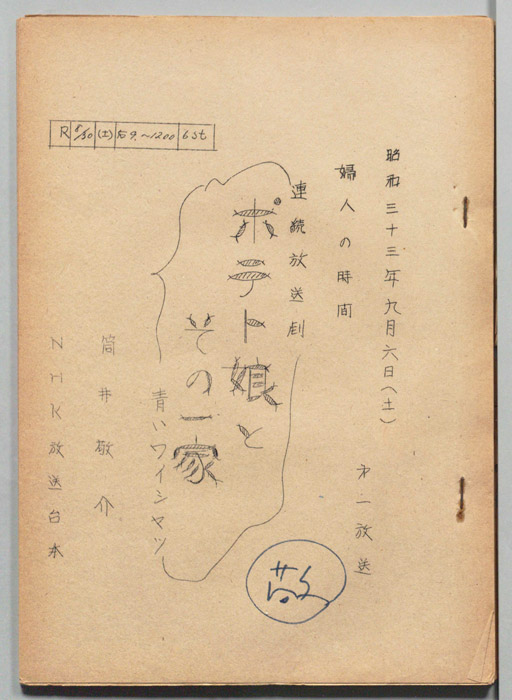 昭和三十三年九月六日(土)
第一放送
婦人の時間
連続放送劇
ポテト娘と
その一家
青いワイシャツ
筒井敬介
NHK放送台本
R 8/30 (土) 后9.~1200 6st
敬